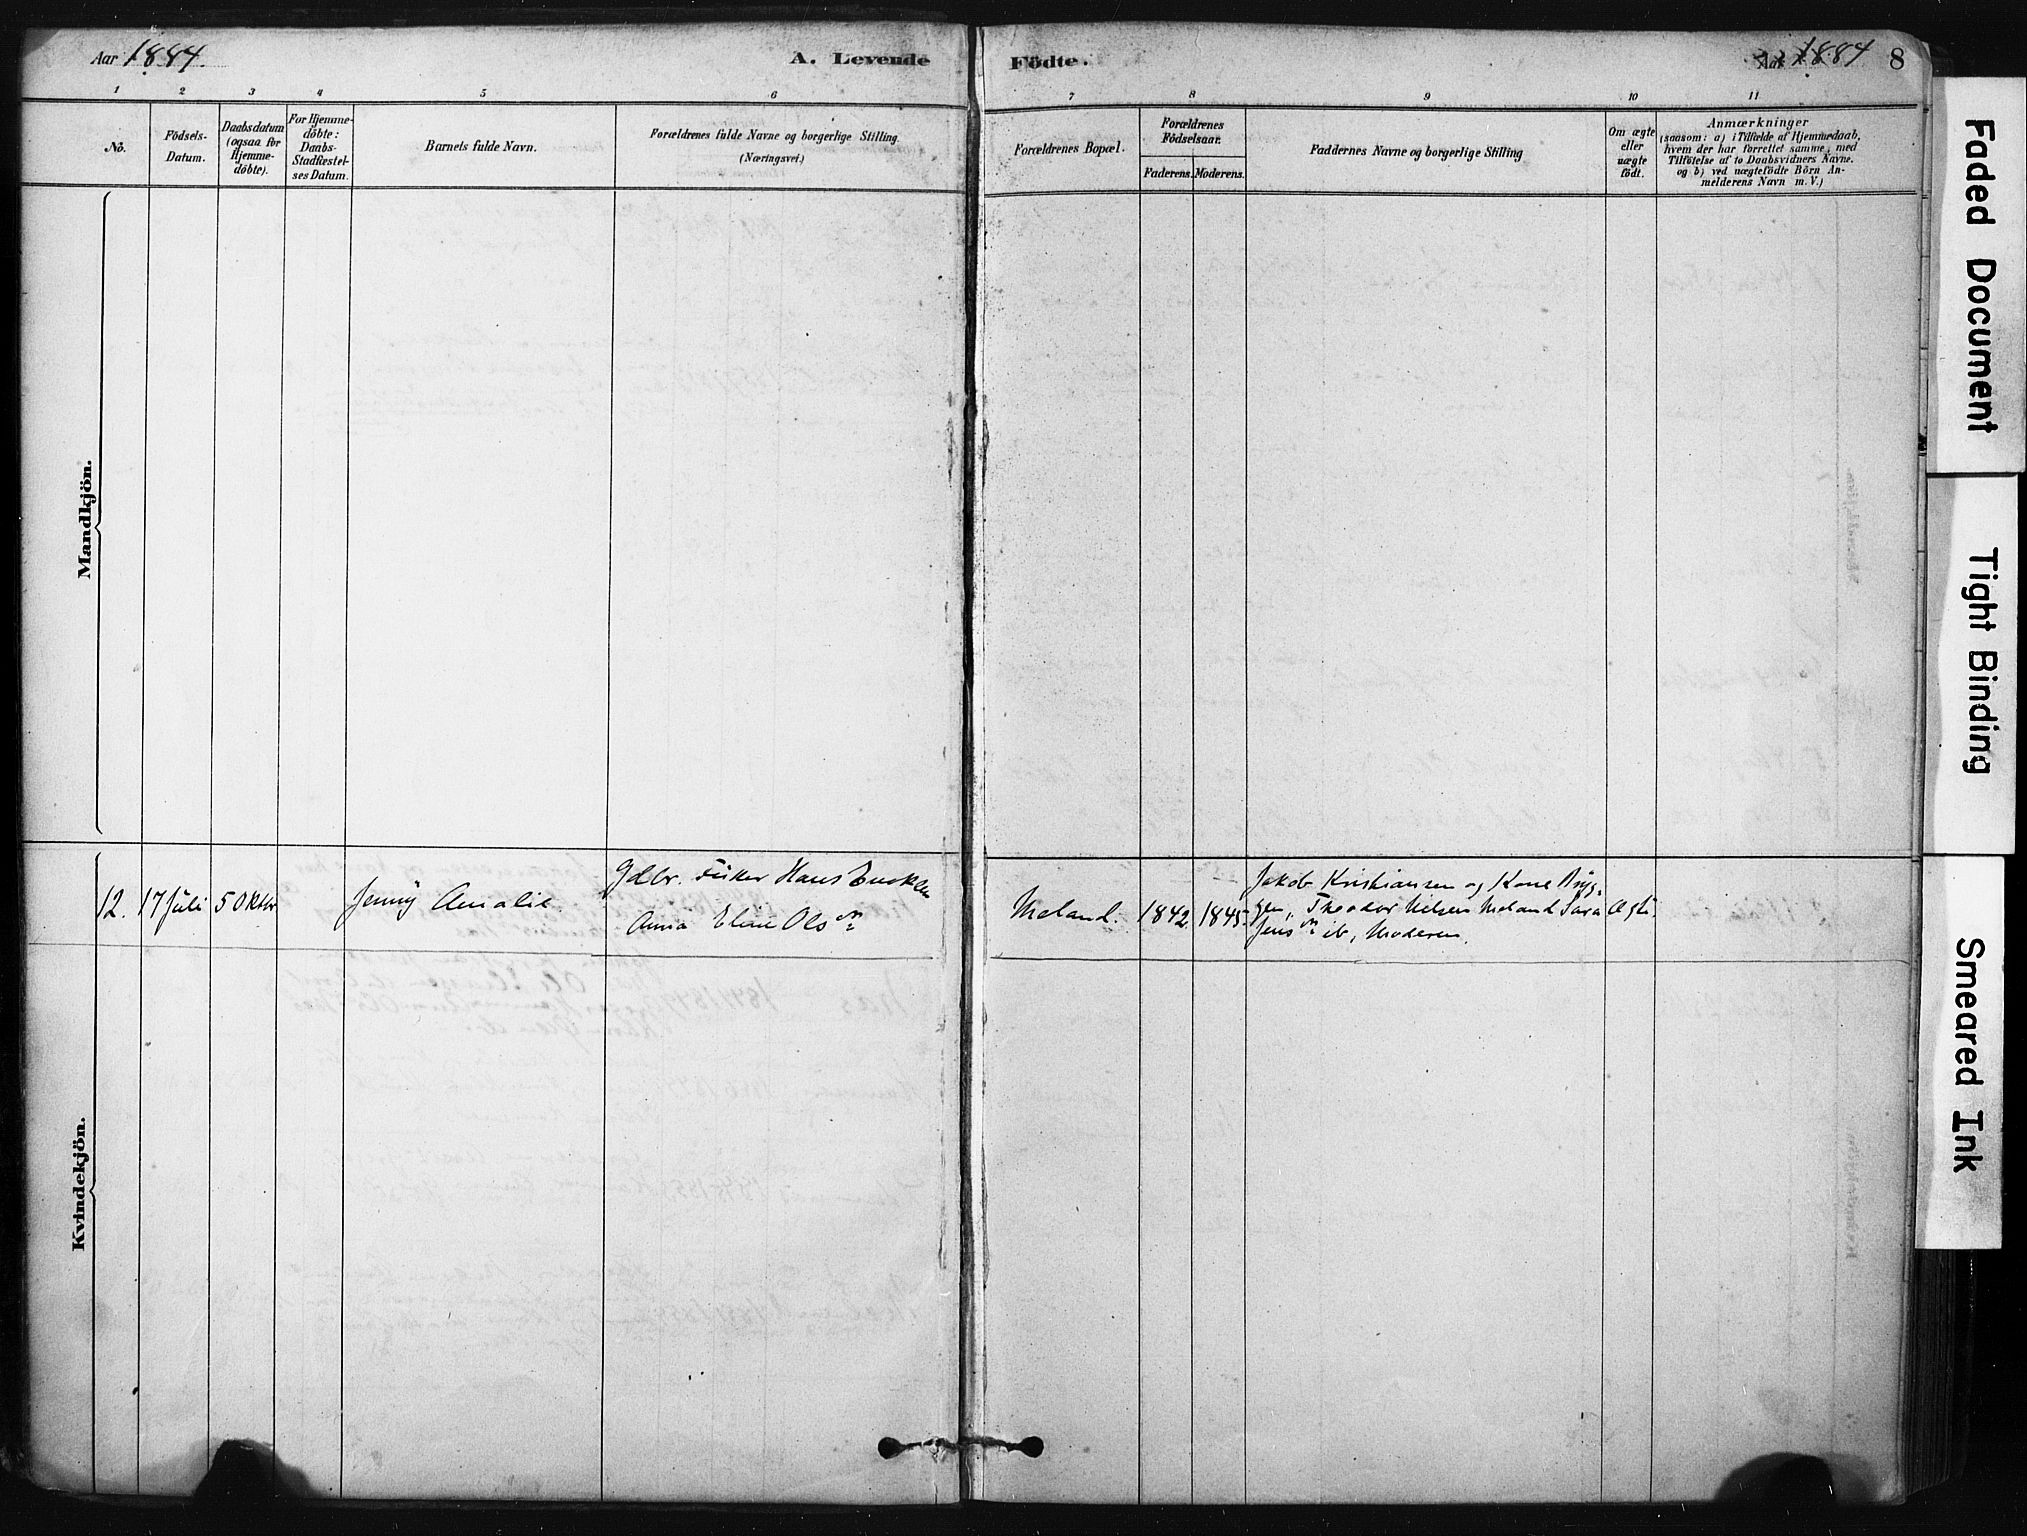 Aar 1884.
A. Levende
Födte.
Aar 1884
8
1 2 3 4 5 6 7 8 9 10 11
No.
Födsels-
Datum.
Daabsdatum
(ogsaa for
Hjemme-
döbte).
For Hjemme-
döbte:
Daabs-
Stadfæstel-
ses Datum.
Barnets fulde Navn.
Forældrenes fulde Navne og borgerlige Stilling.
(Næringsvei.)
Forældrenes Bopæl.
Forældrenes
Födselsaar.
Faderens. Moderens.
Faddernes Navne og borgerlige Stilling
Om ægte
eller
uægte
födt.
Anmærkninger
(saasom: a) i Tilfælde af Hjemmedaab,
hvem der har forrettet samme, med
Tilföielse af to Daabsvidners Navne.
og b) ved uægtefödte Börn An-
melderens Navn m. V.)
Mandkjön.
Kvindekjön.
12. 17 Juli 5 Oktbr Jenny Amalie
Gdbr. Fisker Hans
Anna Eline Olsdr
Meland. 1842. 1845
Jakob Kristiansen og Kone Byg-
gen, Theodor Nilsen Meland Sara
Jensdr ib, Moderen.
Ægte
Faded Document
Tight Binding
Smeared Ink